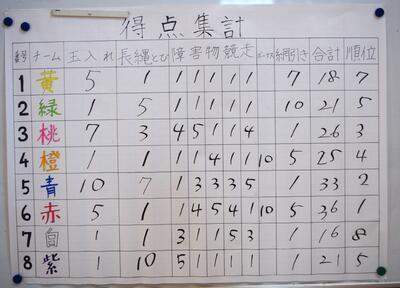 得点集計
番号 チーム 玉入れ 長縄とび 障害物競走 ボーナス 綱引き 合計 順位
1 黄 5 1 1 1 1 1 1 7 18 7
2 緑 1 5 1 1 1 1 1 10 21 5
3 桃 7 3 4 5 1 1 4 1 26 3
4 橙 1 1 1 1 4 1 1 10 5 25 4
5 青 10 7 1 3 3 3 5 1 33 2
6 赤 5 1 1 4 5 4 1 10 5 36 1
7 白 1 1 3 1 1 5 3 1 16 8
8 紫 1 10 5 1 1 1 1 1 21 5